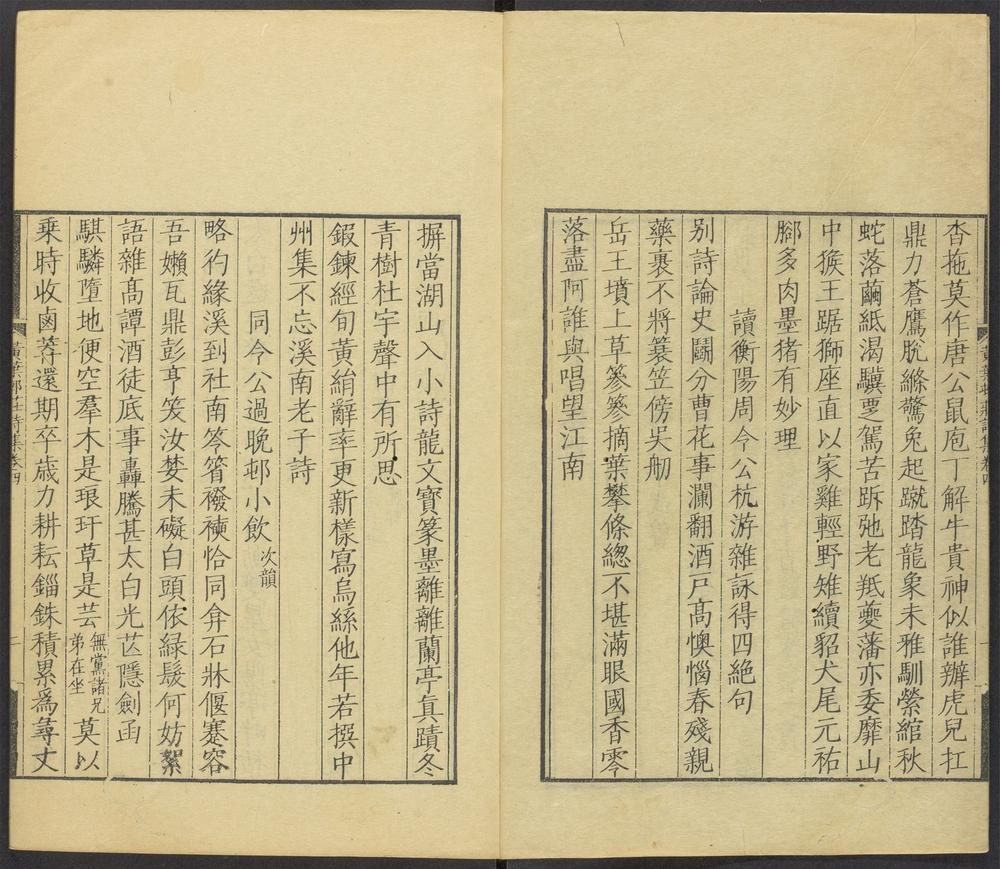 杳拖莫作唐公鼠庖丁解牛貴神似誰辦虎兒扛
鼎力蒼鷹脫絛驚兔起蹴踏龍象未雅馴縈綰秋
蛇落繭紙渴驥要駕苦跅弛老羝夔藩亦委靡山
中猴王踞獅座直以家雞輕野雉續貂犬尾元祐
腳多肉墨猪有妙理
讀衡陽周今公杭游雜詠得四絕句
別詩論史鬭分曹花事瀾翻酒戸髙懊惱春殘親
藥裹不將簑笠傍吴舠
岳王墳上草篸篸摘葉攀條總不堪滿眼國香零
落盡阿誰與唱望江南
摒當湖山入小詩龍文寶篆墨離離蘭亭眞蹟冬
青樹杜宇聲中有所思
鍜鍊經旬黃絹辭率更新樣寫烏絲他年若撰中
州集不忘溪南老子詩
同今公過晚邨小飲次韻
略彴緣溪到社南笭箵襏襫恰同弇石牀偃蹇容
吾嬾瓦鼎彭亨笑汝婪未礙白頭依緑髮何妨絮
語雜髙譚酒徒底事轟騰甚太白光芒隱劍函
騏驎墮地便空羣木是琅玕草是芸無黨諸兄弟在坐莫以
乗時收鹵莽還期卒歳力耕耘錙銖積累爲尋丈
黃葉邨莊詩集卷四